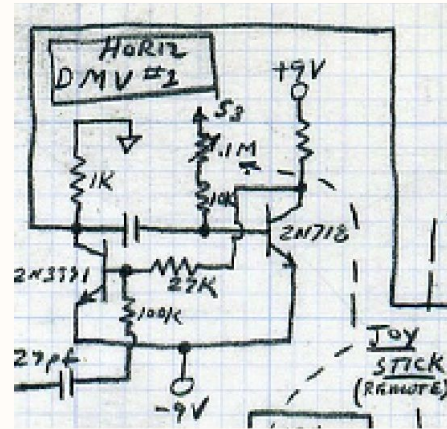 HORIZ
DMV #1
+9V
S3
.1M
1K
10K
2N718
27K
100K
27pf
-9V
JOY
STICK
(REMOTE)